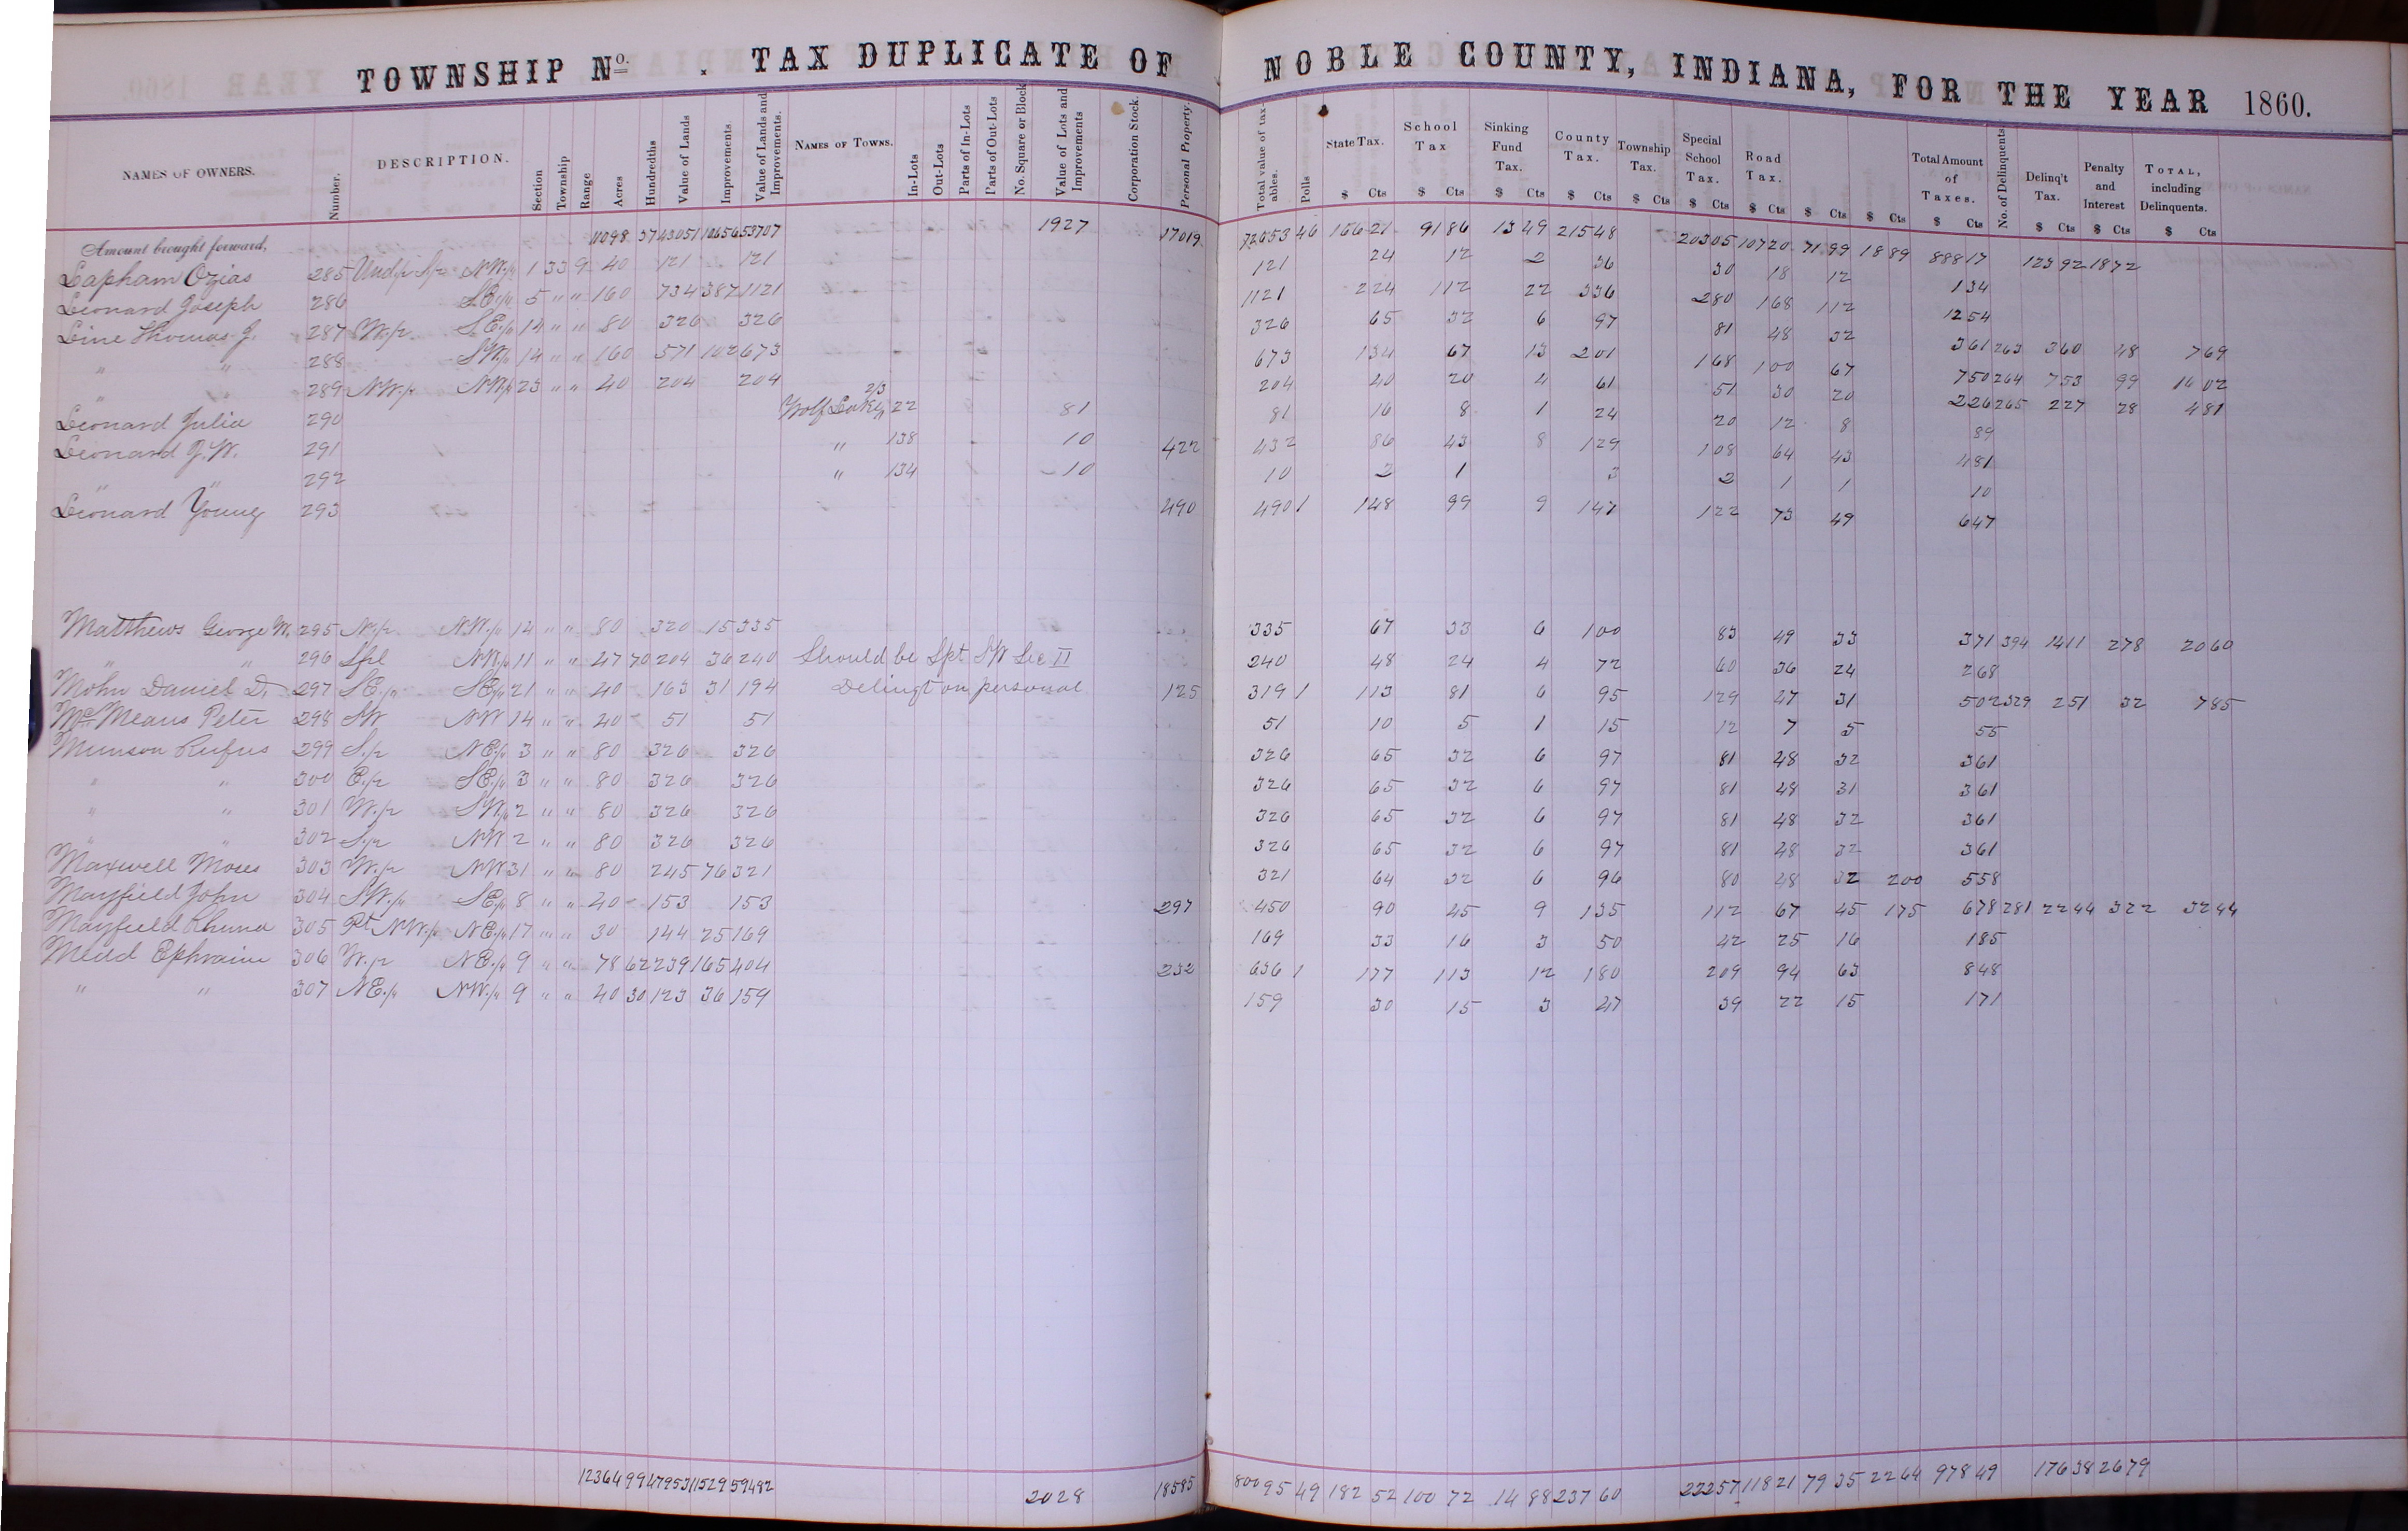 TOWNSHIP No. . TAX DUPLICATE OF NOBLE COUNTY, INDIANA, FOR THE YEAR 1860.
NAMES OF OWNERS. Number. DESCRIPTION. Section Township Range Acres Hundredths Value of Lands Improvements Value of Lands and Improvements. NAMES OF TOWNS. In-Lots Out-Lots Parts of In-Lots Parts of Out-Lots No. Square or Block Value of Lots and Improvements Corporation Stock. Personal Property. Total value of taxables. Polls State Tax. School Tax Sinking Fund Tax. County Tax. Township Tax. Special School Tax. Road Tax. Total Amount of Taxes. No. of Delinquents Delinq't Tax. Penalty and Interest TOTAL, including Delinquents.
$ Cts $ Cts $ Cts $ Cts $ Cts $ Cts $ Cts $ Cts $ Cts $ Cts $ Cts $ Cts $ Cts
Amount brought forward. 11098 37 43051 10656 53707 1927 17019 72653 46 166 21 91 86 13 49 215 48 203 05 107 20 71 99 18 89 888 17 123 92 18 72
Lapham Ozias 285 Und 1/2 S 1/2 N.W. 1/4 1 33 9 40 121 121 121 24 12 2 36 30 18 12 1 34
Leonard Joseph 286 S.E. 1/4 5 " " 160 734 387 1121 1121 2 24 1 12 22 3 36 2 80 1 68 1 12 12 54
Line Thomas J. 287 W. 1/2 S.E. 1/4 14 " " 80 326 326 326 65 32 6 97 81 48 32 3 61 263 3 60 48 7 69
" " 288 S.W. 1/4 14 " " 160 571 102 673 673 1 34 67 13 2 01 1 68 1 00 67 7 50 264 7 53 99 16 02
" " 289 N.W. 1/4 N.W. 1/4 23 " " 40 204 204 204 40 20 4 61 51 30 20 2 26 265 2 27 28 4 81
Leonard Julia 290 Wolf Lake 2/3 22 81 81 16 8 1 24 20 12 8 89
Leonard J.W. 291 " 138 10 422 432 86 43 8 1 29 1 08 64 43 4 81
" " 292 " 134 10 10 2 1 3 2 1 1 10
Leonard Young 293 490 490 1 1 48 99 9 1 47 1 22 73 49 6 47
Matthews George W. 295 N. 1/2 N.W. 1/4 14 " " 80 320 15 335 335 67 33 6 1 00 83 49 33 3 71 394 14 11 2 78 20 60
" " 296 Spt N.W. 1/4 11 " " 47 70 204 36 240 Should be Spt S.W Sec II 240 48 24 4 72 60 36 24 2 68
Mohn Daniel D. 297 S.E. 1/4 S.E. 1/4 21 " " 40 163 31 194 Delinqt on personal 125 319 1 1 13 81 6 95 1 29 47 31 5 02 329 2 51 32 7 85
McMeans Peter 298 SW NW 14 " " 40 51 51 51 10 5 1 15 12 7 5 55
Munson Rufus 299 S. 1/2 N.E. 1/4 3 " " 80 326 326 326 65 32 6 97 81 48 32 3 61
" " 300 E. 1/2 S.E. 1/4 3 " " 80 326 326 326 65 32 6 97 81 48 31 3 61
" " 301 W. 1/2 S.W. 1/4 2 " " 80 326 326 326 65 32 6 97 81 48 32 3 61
" " 302 S. 1/2 N.W 2 " " 80 326 326 326 65 32 6 97 81 48 32 3 61
Maxwell Moses 303 W. 1/2 N.W 31 " " 80 245 76 321 321 64 32 6 96 80 48 32 2 00 5 58
Mayfield John 304 S.W. 1/4 S.E. 1/4 8 " " 40 153 153 297 450 90 45 9 1 35 1 12 67 45 1 75 6 78 281 22 44 3 22 32 44
Mayfield Rhuna 305 Pt N.W. 1/4 N.E. 1/4 17 " " 30 144 25 169 169 33 16 3 50 42 25 16 1 85
Mead Ephraim 306 W. 1/2 N.E. 1/4 9 " " 78 62 239 165 404 232 636 1 1 77 1 13 12 1 80 2 09 94 63 8 48
" " 307 N.E. 1/4 N.W. 1/4 9 " " 40 30 123 36 159 159 30 15 3 47 39 22 15 1 71
12364 99 47953 11529 59482 2028 18585 80095 49 182 52 100 72 14 88 237 60 222 57 118 21 79 35 22 64 978 49 176 38 26 79